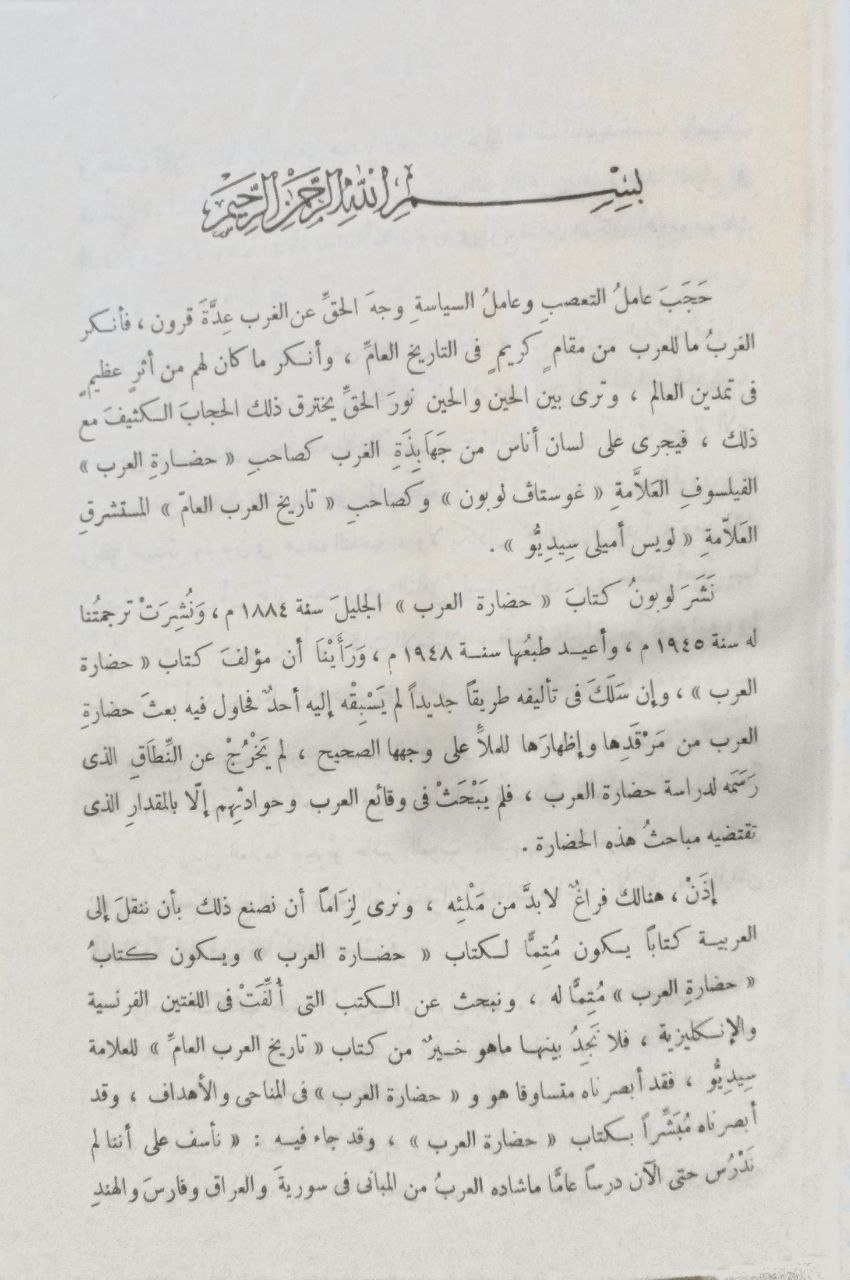 بِسْمِ اللهِ الرَّحْمٰنِ الرَّحِيمِ
حَجَبَ عاملُ التعصبِ وعاملُ السياسةِ وجهَ الحقِّ عن الغرب عِدَّةَ قرون ، فأنكر
الغربُ ما للعرب من مقامٍ كريمٍ فى التاريخ العامِّ ، وأنكر ما كان لهم من أثرٍ عظيمٍ
فى تمدين العالم ، وترى بين الحين والحين نورَ الحقِّ يخترق ذلك الحجابَ الكثيفَ مع
ذلك ، فيجرى على لسان أناس من جَهَابِذَةِ الغرب كصاحبِ « حضارةِ العرب »
الفيلسوفِ العَلاَّمةِ « غوستاف لوبون » وكصاحبِ « تاريخ العرب العامّ » المستشرقِ
العَلاَّمةِ « لويس أميلى سِيدِيُّو » .
نَشَرَ لوبونُ كتابَ « حضارة العرب » الجليلَ سنة ١٨٨٤ م ، وَنُشِرَتْ ترجمتُنا
له سنة ١٩٤٥ م ، وأعيد طبعُها سنة ١٩٤٨ م ، وَرَأَيْنَا أن مؤلفَ كتاب « حضارة
العرب » ، وإن سَلَكَ فى تأليفه طريقاً جديداً لم يَسْبِقْه إليه أحدٌ فحاول فيه بعثَ حضارةِ
العرب من مَرْقَدِها وإظهارَها للملأِ على وجهها الصحيح ، لم يَخْرُجْ عن النِّطَاقِ الذى
رَسَمَه لدراسة حضارة العرب ، فلم يَبْحَثْ فى وقائع العرب وحوادثِهم إلّا بالمقدارِ الذى
تقتضيه مباحثُ هذه الحضارة .
إذَنْ ، هنالك فراغٌ لابدَّ من مَلْئِه ، ونرى لِزَاماً أن نصنع ذلك بأن ننقلَ إلى
العربية كتاباً يكون مُتِمًّا لكتاب « حضارة العرب » ويكون كتابُ
« حضارةِ العرب » مُتِمًّا له ، ونبحث عن الكتب التى أُلِّفَتْ فى اللغتين الفرنسية
والإنكليزية ، فلا نَجِدُ بينها ماهو خيرٌ من كتاب « تاريخ العرب العامِّ » للعلامة
سِيدِيُّو ، فقد أبصرناه متساوقا هو و « حضارة العرب » فى المناحى والأهداف ، وقد
أبصرناه مُبَشِّراً بكتاب « حضارة العرب » ، وقد جاء فيه : « نأسف على أننا لم
نَدْرُس حتى الآن درساً عامًّا ماشاده العربُ من المبانى فى سوريةَ والعراق وفارسَ والهندِ